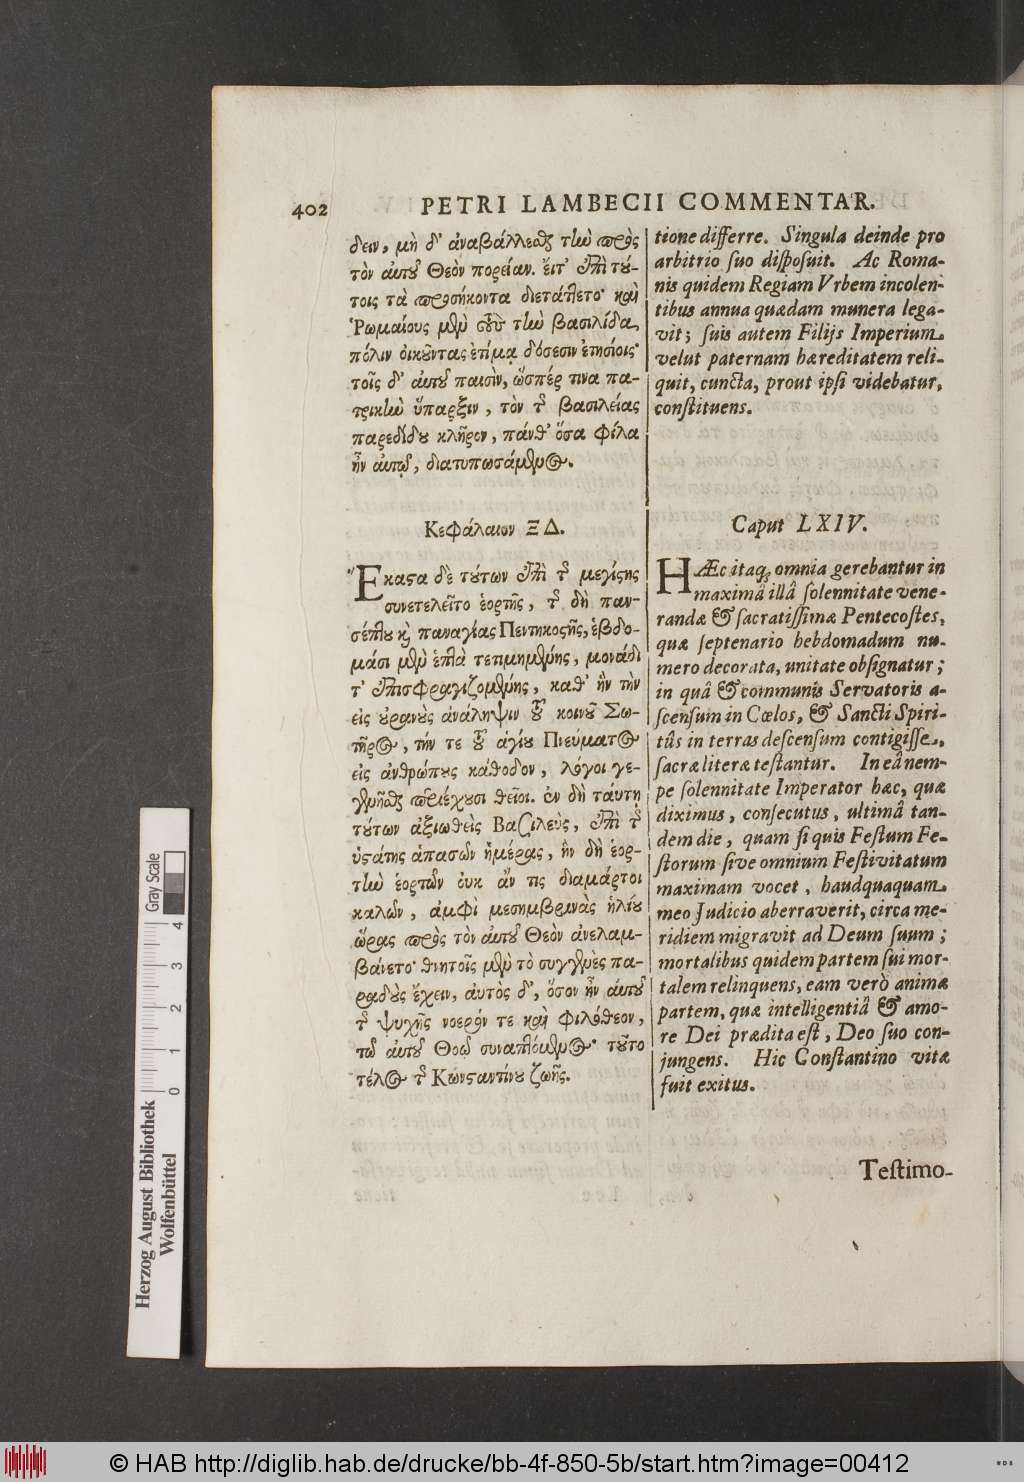 402 PETRI LAMBECII COMMENTAR.
δειν, μὴ δ' ἀναβάλλεσθαι τὴν πρὸς
τὸν αὐτοῦ Θεὸν πορείαν. εἶτ' ἐπὶ τού-
τοις τὰ προσήκοντα διετάττετο· καὶ
Ῥωμαίους μὲν τὴν βασιλίδα
πόλιν οἰκοῦντας ἐτίμα δόσεσιν ἐτησίοις·
τοῖς δ' αὐτοῦ παισὶν, ὥσπέρ τινα πα-
τρικὴν ὕπαρξιν, τὸν τῆς βασιλείας
παρεδίδου κλῆρον, πάνθ' ὅσα φίλα
ἦν αὐτῷ, διατυπωσάμενος.
Κεφάλαιον ΞΔ.
Ἕκαστα δὲ τούτων ἐπὶ τῆς μεγίστης
συνετελεῖτο ἑορτῆς, τῆς δὴ παν-
σέπτου καὶ παναγίας Πεντηκοστῆς, ἑβδο-
μάσι μὲν ἑπτὰ τετιμημένης, μονάδι
τ' ἐπισφραγιζομένης, καθ' ἣν τὴν
εἰς οὐρανοὺς ἀνάληψιν τοῦ κοινοῦ Σω-
τῆρος, τήν τε τοῦ ἁγίου Πνεύματος
εἰς ἀνθρώπους κάθοδον, λόγοι γε-
γενῆσθαι περιέχουσι θεῖοι. ἐν δὴ ταύτῃ
τούτων ἀξιωθεὶς Βασιλεὺς, ἐπὶ τῆς
ὑστάτης ἁπασῶν ἡμέρας, ἣν δὴ ἑορ-
τὴν ἑορτῶν οὐκ ἄν τις διαμάρτοι
καλῶν, ἀμφὶ μεσημβρινὰς ἡλίου
ὥρας πρὸς τὸν αὐτοῦ Θεὸν ἀνελαμ-
βάνετο· θνητοῖς μὲν τὸ συγγενὲς πα-
ραδοὺς ἔχειν, αὐτὸς δ', ὅσον ἦν αὐτοῦ
τῆς ψυχῆς νοερόν τε καὶ φιλόθεον,
τῷ αὐτοῦ Θεῷ συναπτόμενος· τοῦτο
τέλος τῆς Κωνσταντίνου ζωῆς.
tione differre. Singula deinde pro
arbitrio suo disposuit. Ac Roma-
nis quidem Regiam Vrbem incolen-
tibus annua quædam munera lega-
vit; suis autem Filijs Imperium
velut paternam hæreditatem reli-
quit, cuncta, prout ipsi videbatur,
constituens.
Caput LXIV.
HÆc itaq; omnia gerebantur in
maximâ illâ solennitate vene-
randæ & sacratissimæ Pentecostes,
quæ septenario hebdomadum nu-
mero decorata, unitate obsignatur;
in quâ & communis Servatoris a-
scensum in Cœlos, & Sancti Spiri-
tûs in terras descensum contigisse,
sacræ literæ testantur. In eâ nem-
pe solennitate Imperator hæc, quæ
diximus, consecutus, ultimâ tan-
dem die, quam si quis Festum Fe-
storum sive omnium Festivitatum
maximam vocet, haudquaquam
meo Judicio aberraverit, circa me-
ridiem migravit ad Deum suum;
mortalibus quidem partem sui mor-
talem relinquens, eam verò animæ
partem, quæ intelligentiâ & amo-
re Dei prædita est, Deo suo con-
jungens. Hic Constantino vitæ
fuit exitus.
Testimo-
Herzog August Bibliothek
Wolfenbüttel
0 1 2 3 4
Gray Scale
© HAB http://diglib.hab.de/drucke/bb-4f-850-5b/start.htm?image=00412